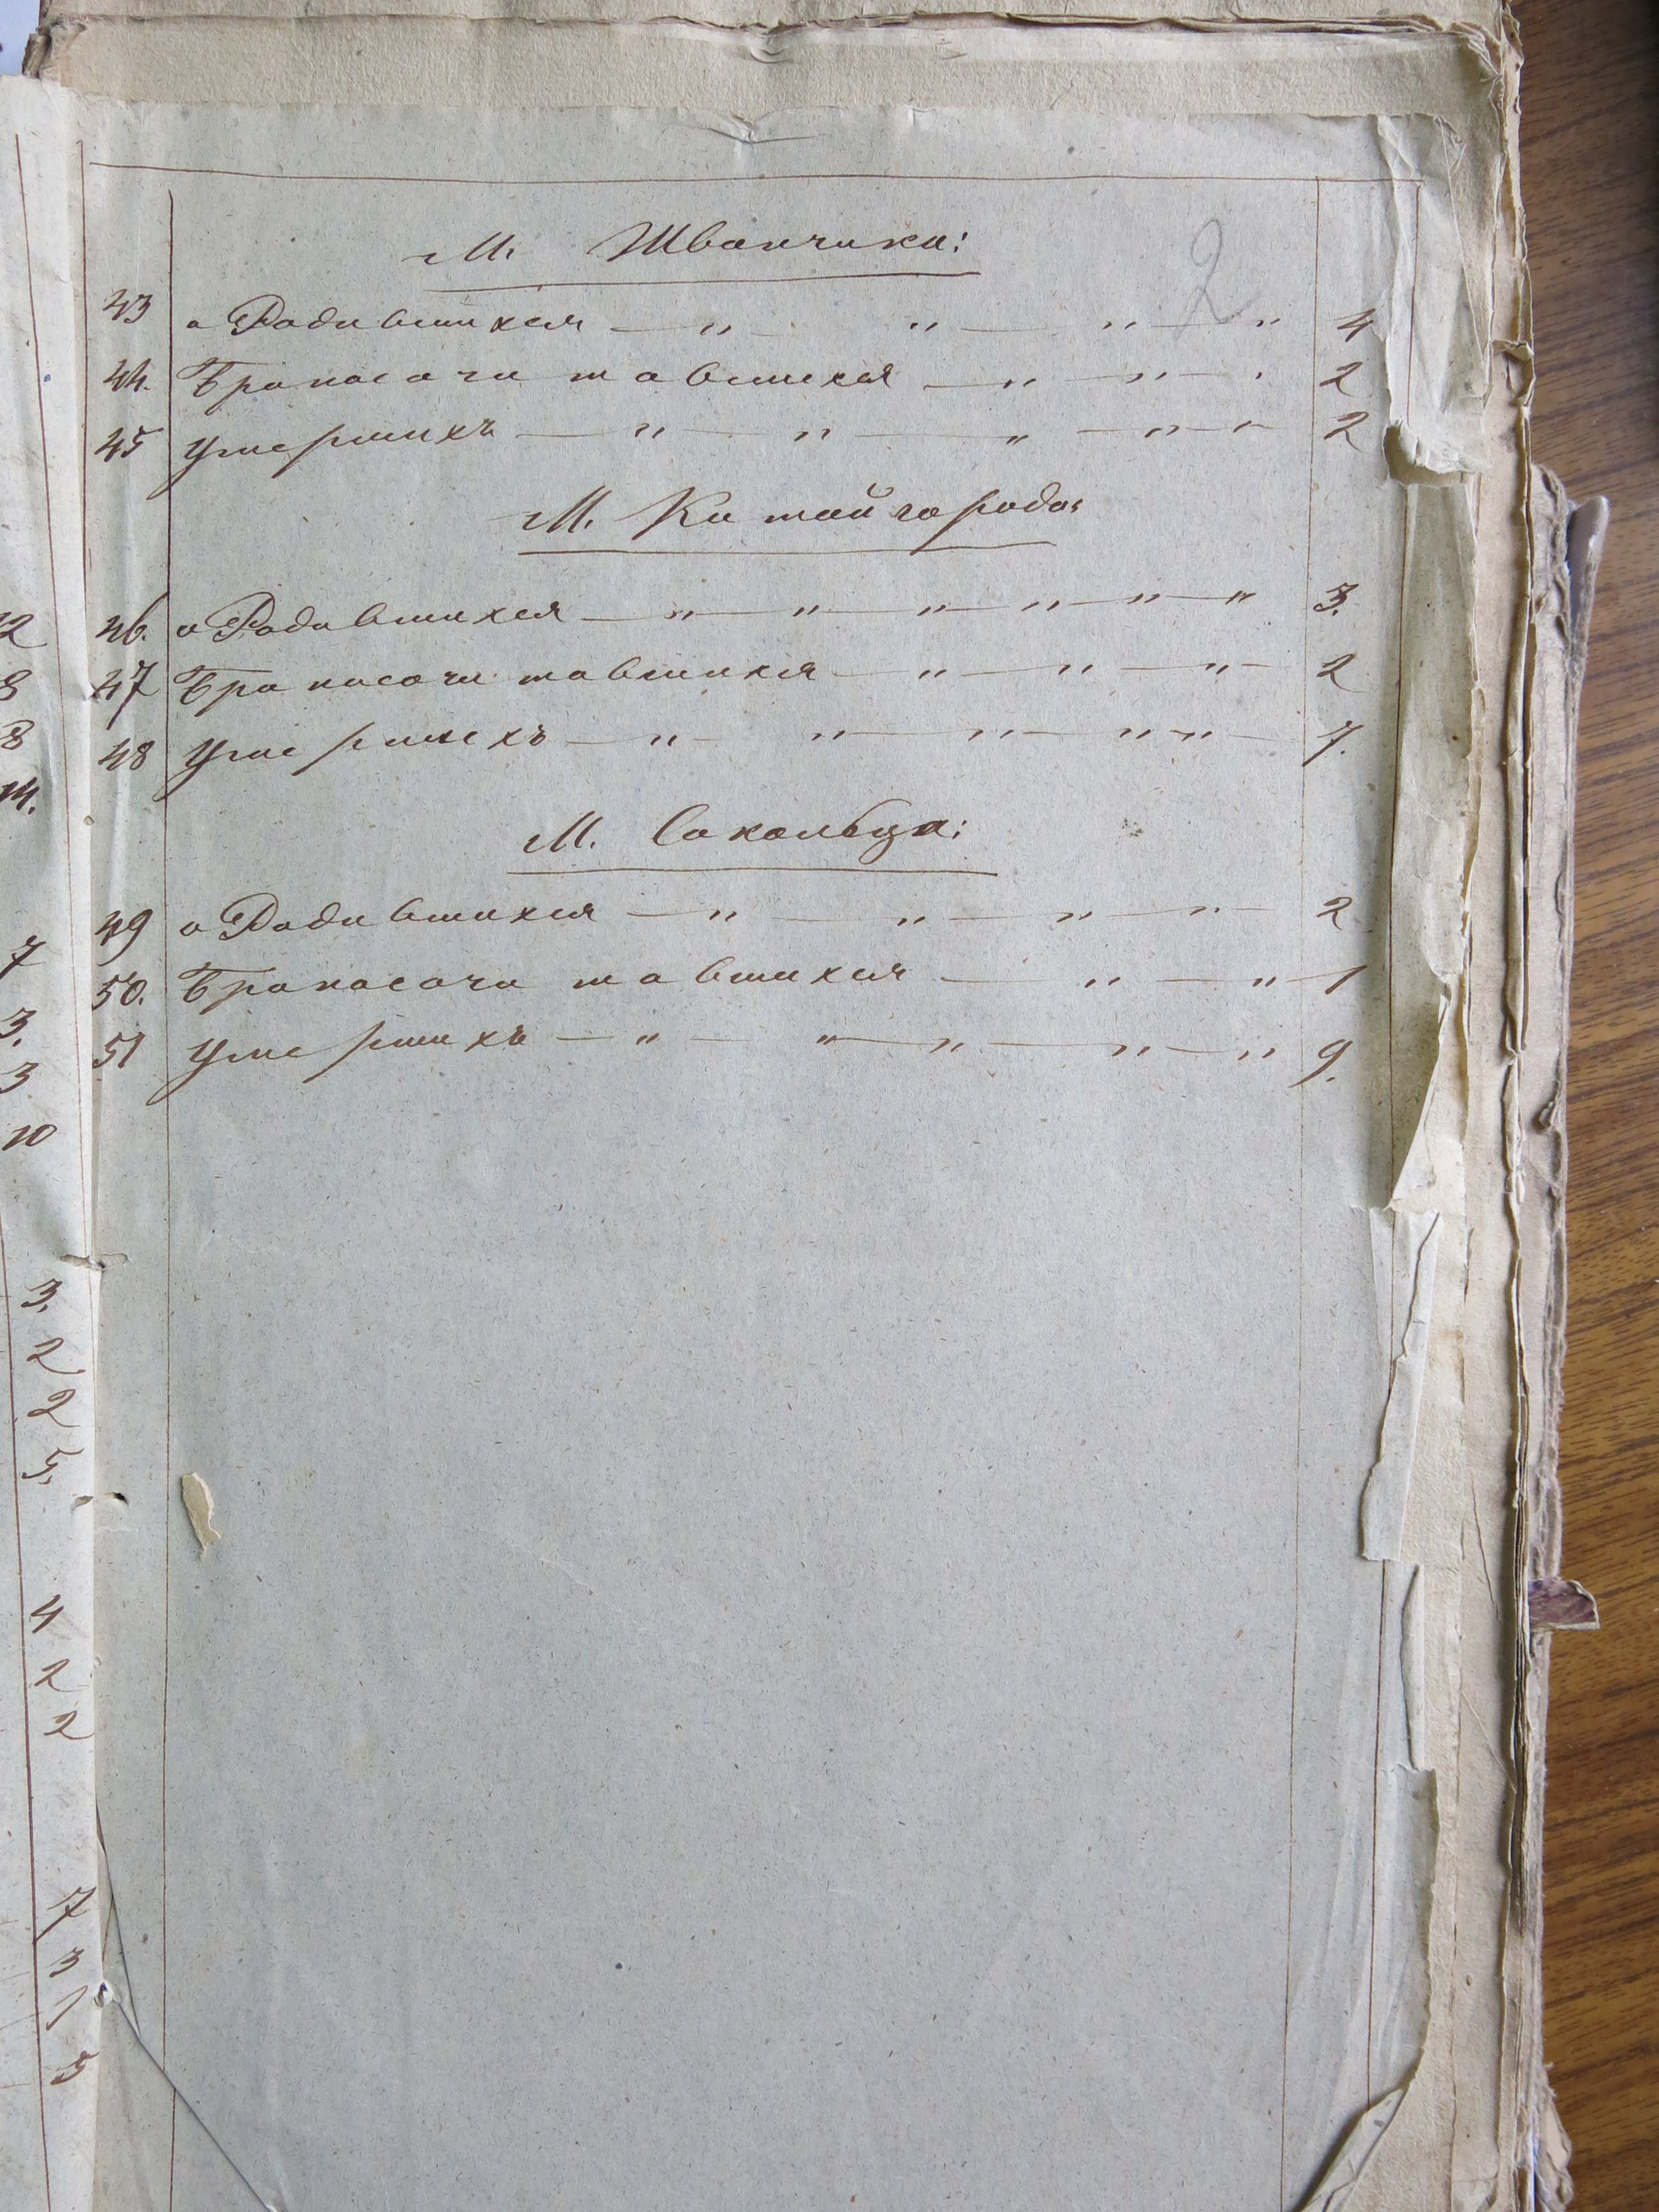 2
М. Жванчика:
43 о Родившихся — „ — „ — „ — „ 4
44. Бракосочитавшихся — „ — „ — 2
45 Умершихъ — „ — „ — „ — „ — „ — 2
М. Китайгорода:
46. о Родившихся — „ — „ — „ — „ — „ — „ 3.
47 Бракосочитавшихся — „ — „ — „ — 2
48 Умершихъ — „ — „ — „ — „ — „ — 7.
М. Сокольца:
49 о Родившихся — „ — „ — „ — „ — 2
50. Бракосочитавшихся — „ — „ — 1
51 Умершихъ — „ — „ — „ — „ — „ 9.
12
8
8
14.
7
3.
3
10
3.
2
2
5.
4
2
2
7
3
1
5